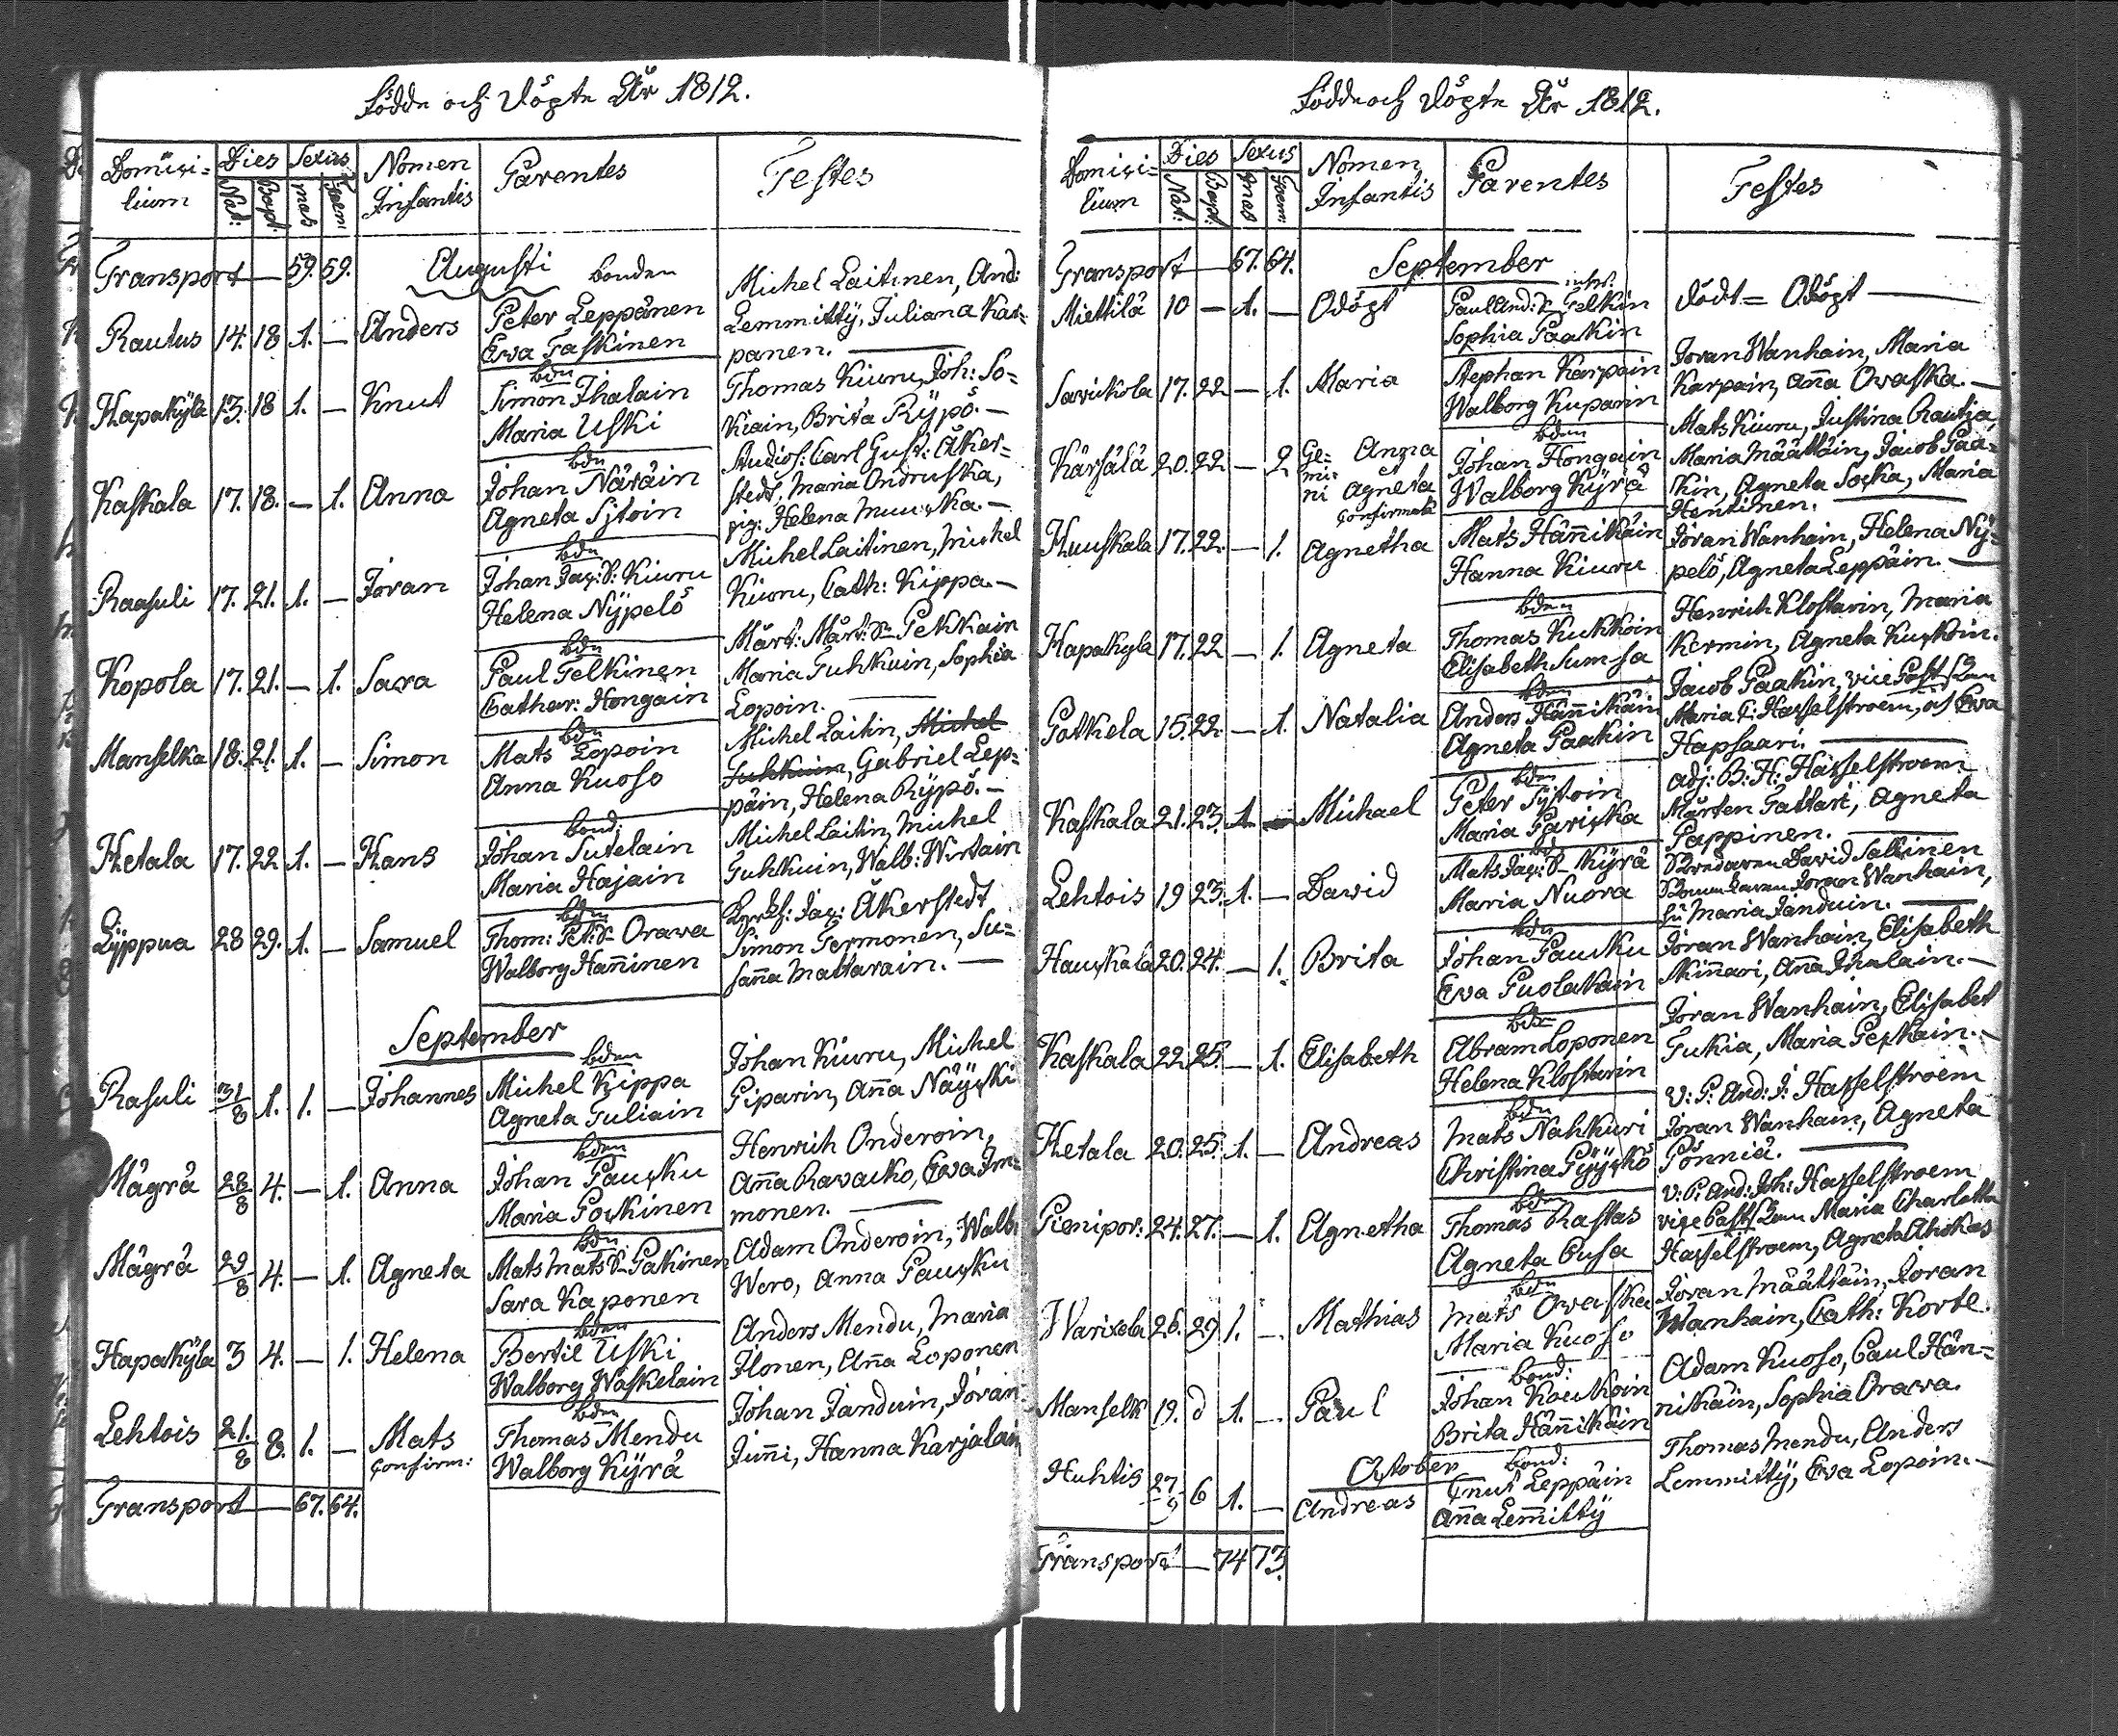 Födde och Döpte År 1812.
Domici-
lium
Dies
Nat:
Bapt:
Sexus
mas
Foem:
Nomen
Infantis
Parentes
Testes
Transport — 59. 59.
Augusti
Rautus 14. 18 1. — Anders
bonden
Peter Leppänen
Ewa Taskinen
Michel Laitinen, And:
Lemmitty, Juliana Kar-
panen. —
Hapakylä 13. 18 1. — Knut
bdn
Simon Ihalain
Maria Uski
Thomas Kiuru, Joh: So-
Kiain, Brita Rÿpö. —
Kaskala 17. 18. — 1. Anna
bdn
Johan Näräin
Agneta Sjtoin
Studios: Carl Gust: Åker-
stedt, Maria Ondruska,
pig: Helena Muucka. —
Raasuli 17. 21. 1. — Jöran
bdn
Johan Jac: S: Kiuru
Helena Nÿpelö
Michel Laitinen, Michel
Kiuru, Cath: Kippa. —
Kopola 17. 21. — 1. Sara
bdn
Paul Telkinen
Cathar: Hongain
Mårt: Mårt: Sn Pekkain
Maria Tuhkuin, Sophia
Lopoin. —
Manselka 18. 21. 1. — Simon
bdn
Mats Lopoin
Anna Kuoso
Michel Laitin, Michel
Tuhkuin, Gabriel Lep-
päin, Helena Rÿpö. —
Ketala 17. 22 1. — Hans
bond:
Johan Sutelain
Maria Hajain
Michel Laitin, Michel
Tuhkuin, Walb: Wirtain
Lÿppua 28 29. 1. — Samuel
bdn
Thom: Pet: Sn Orawa
Walborg Hañinen
Jac: Åkerstedt
Simon Tormonen, Su-
saña Mattarain. —
September
Rasuli 31/8 1. 1. — Johannes
bden
Michel Kippa
Agneta Tuliain
Johan Kiuru, Michel
Piparin, Aña Näÿcki
Mägrä 28/8 4. — 1. Anna
bden
Johan Paucku
Maria Pockinen
Henrich Onderoin,
Aña Ravacko, Ewa Im-
monen. —
Mägrä 29/8 4. — 1. Agneta
bdn
Mats Mats S- Pakinen
Sara Kaponen
Adam Onderoin, Walb:
Wero, Anna Paucku
Hapakÿla 3 4. — 1. Helena
bden
Bertil Uski
Walborg Waskelain
Anders Mendu, Maria
Ilonen, Aña Loponen
Lehtois 21./8 8. 1. — Mats
confirm:
bdn
Thomas Mendu
Walborg Kÿrä
Johan Janduin, Jöran
Juñi, Hanna Karjalain
Transport — 67. 64.
Födde och Döpte År 1812.
Domici-
lium
Dies
Nat:
Bapt:
Sexus
mas
Foem:
Nomen
Infantis
Parentes
Testes
Transport — 67. 64.
September
Miettilä 10 — 1. — Odöpt
inhs:
Paul And: Sn Telkin
Sophia Paakin
död = Odöpt —
Savikola 17. 22 — 1. Maria
Stephan Karpain
Walborg Kuparin
Jöran Wanhain, Maria
Karpain, Aña Owaska. —
Kärsälä 20. 22 — 2
Ge-
mi-
ni
Anna
et
Agneta
confirmata
bden
Johan Hongain
Walborg Kÿrä
Mats Kiuru, Justina Rautja,
Maria Määttäin, Jacob Paa-
kin, Agneta Socka, Maria
Hentinen.
Huuskala 17. 22. — 1. Agnetha
Mats Häñikäin
Hanna Kiuru
Jöran Wanhain, Helena Nÿ-
pelö, Agneta Leppäin. —
Hapakyla 17. 22 — 1. Agneta
bden
Thomas Kukkoin
Elisabeth Sumsa
Henrich Klostarin, Maria
Kermin, Agneta Kuckoin.
Potkela 15. 22. — 1. Natalia
bden
Anders Häñikäin
Agneta Paakin
Jacob Paakin, vice Past
Maria C: Hasselstroem, och Ewa
Hapsaari. —
Kaskala 21. 23. 1 — Michael
bdn
Peter Sÿtoin
Maria Paricka
Adj: B: H: Hasselstroem
Mårten Tattari, Agneta
Pappinen. —
Lehtois 19 23. 1. — David
bd
Mats Jac: S- Kÿrä
Maria Nuora
David Sallinen
Jöran Wanhain,
Maria Janduin. —
Hauckala 20. 24. — 1. Brita
bdn
Johan Paucku
Eva Puolakain
Jöran Wanhain, Elisabeth
Kiñari, Aña Ihalain. —
Kaskala 22. 25. — 1. Elisabeth
bdn
Abram Loponen
Helena Klostarin
Jöran Wanhain, Elisabet
Tukia, Maria Peckain. —
Ketala 20. 25. 1. — Andreas
bdn
Mats Nahkuri
Christina Pÿÿckö
V: P: And: J: Hasselstroem
Jöran Wanhain, Agneta
Pönniä. —
Pienipor: 24. 27. — 1. Agnetha
bdn
Thomas Rastas
Agneta Pusa
V: P: And: Joh: Hasselstroem
vice Past Maria Charlotta
Hasselstroem, Agneta Ahokas
Warixela 26. 29 1. — Mathias
bdn
Mats Owaska
Maria Kuoso
Jöran Määttäin, Jöran
Wanhain, Cath: Korte.
Manselk 19. d 1. — Paul
bond:
Johan Koukoin
Brita Häñikäin
Adam Kuoso, Paul Hän-
nikäin, Sophia Orawa.
October
Huhtis 27/9 6 1. — Andreas
bond:
Cnut Leppäin
Aña Lem̃itty
Thomas Mendu, Anders
Lemmitty, Eva Lopoin. —
Transport — 74 73.